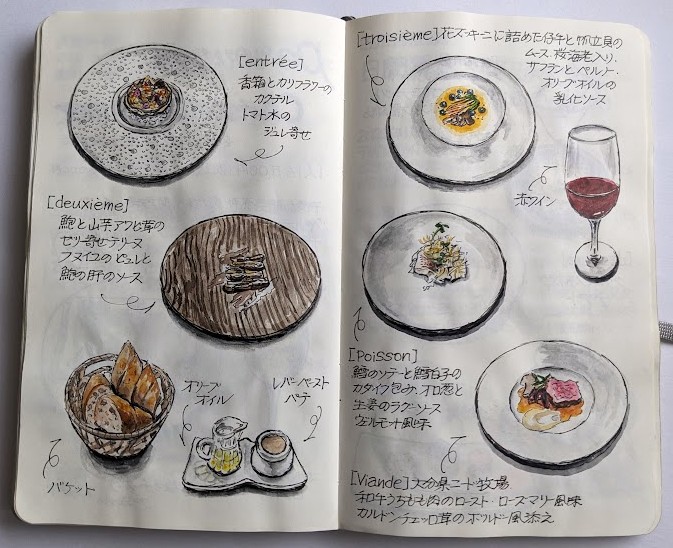 [entrée]
香箱とカリフラワーの
カクテル
トマト水の
ジュレ寄せ
[deuxième]
鮑と山芋アワビ茸の
ゼリ寄せテリーヌ
フヌイユのピュレと
鮑の肝のソース
オリーブ
オイル
レバーペースト
パテ
バケット
[troisième] 花ズッキーニに詰めた仔牛と帆立貝の
ムース、桜海老入り、
サフランとペルノー
オリーブオイルの
乳化ソース
赤ワイン
[Poisson]
鱈のソテーと鱈白子の
カダイフ包み、オロ葱と
生姜のラグーソース
ヴェルモット風味
[Viande] 大分県ニード牧場
和牛うちもも肉のロースト・ローズマリー風味
カルドンチェッロ茸のボルドー風添え